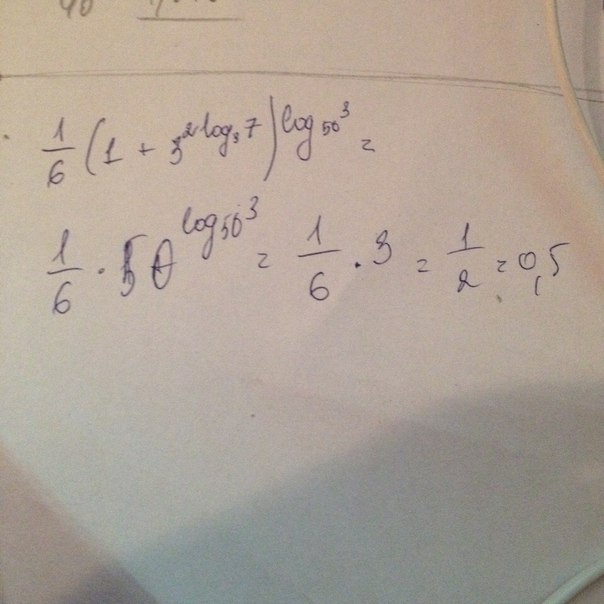 1/6 (1 + 3^{2·log_3 7})^{log_50 3} =
1/6 · 50^{log_50 3} = 1/6 · 3 = 1/2 = 0,5